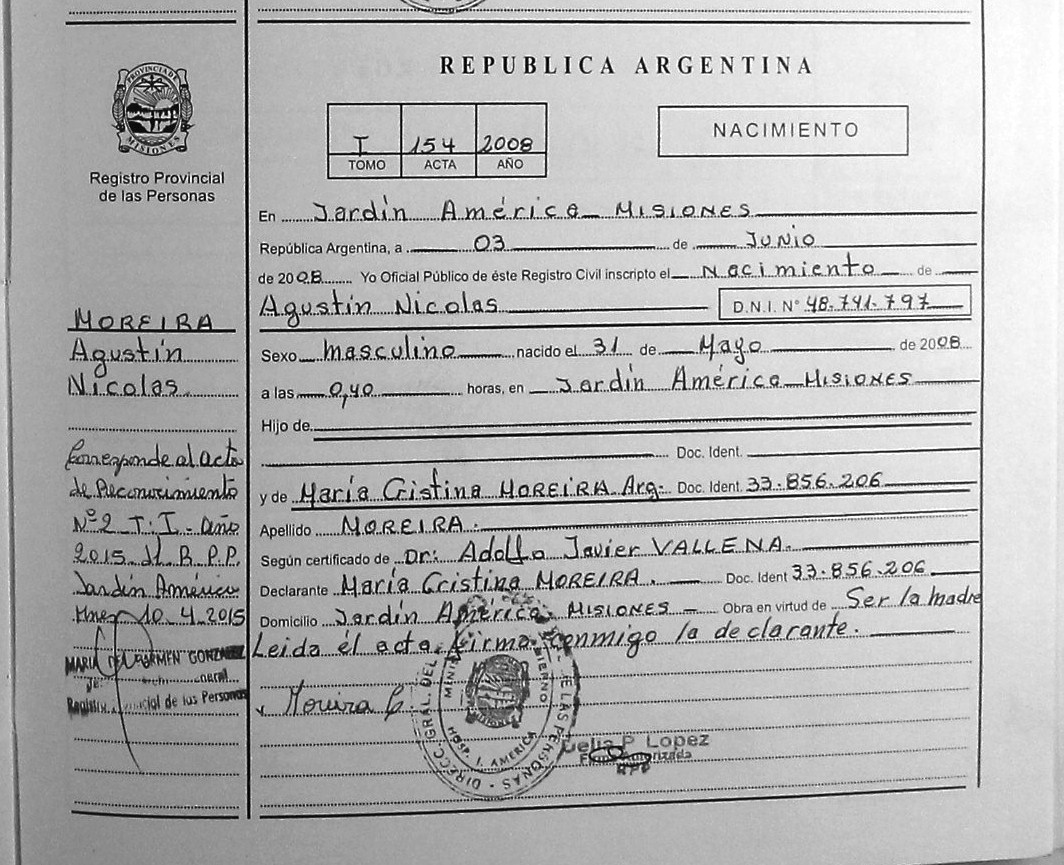 REPUBLICA ARGENTINA
PROVINCIA DE MISIONES
Registro Provincial
de las Personas
I 154 2008
TOMO ACTA AÑO
NACIMIENTO
En Jardín América MISIONES
República Argentina, a 03 de JUNIO
de 2008 Yo Oficial Público de éste Registro Civil inscripto el Nacimiento de
Agustín Nicolas D.N.I. N° 48.741.797
Sexo Masculino nacido el 31 de Mayo de 2008
a las 0,40 horas, en Jardín América MISIONES
Hijo de
Doc. Ident.
y de María Cristina MOREIRA Arg. Doc. Ident. 33.856.206
Apellido MOREIRA.
Según certificado de Dr: Adolfo Javier VALLENA.
Declarante María Cristina MOREIRA. Doc. Ident 33.856.206
Domicilio Jardín América MISIONES Obra en virtud de Ser la madre
Leida él acta, firma conmigo la declarante.
Moreira C.
MOREIRA
Agustín
Nicolas.
Corresponde al acta
de Reconocimiento
N°2 T: I - Año
2015 R.P.P.
Jardín América
Mnes 10.4.2015
MARIA DEL CARMEN GONZALEZ
de las Personas
DIRECC. GRAL. DEL DE LAS PERSONAS
HOSP. J. AMERICA
Delia P. Lopez
Firma Autorizada
RPP